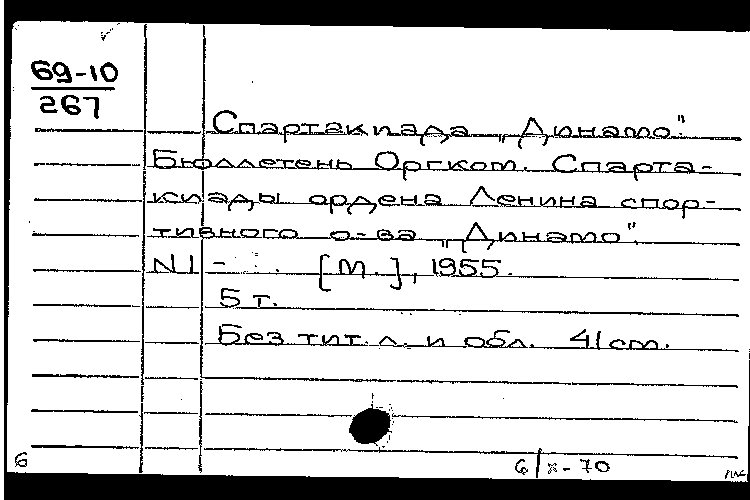 69-10
267
Спартакиада „Динамо".
Бюллетень Оргком. Спарта-
киады ордена Ленина спор-
тивного о-ва „Динамо".
N 1 - . [М.], 1955.
5 т.
Без тит. л. и обл. 41 см.
6
6/X-70